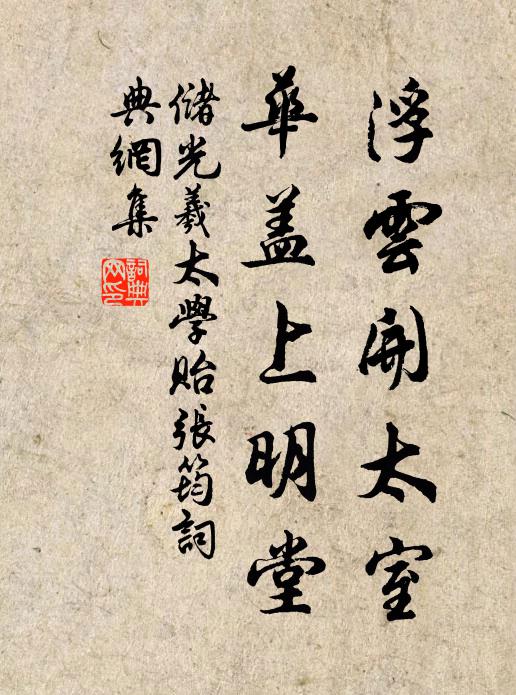 浮雲開太室
華盖上明堂
儲光羲太學貽張筠詞
典網集
詞典
网印